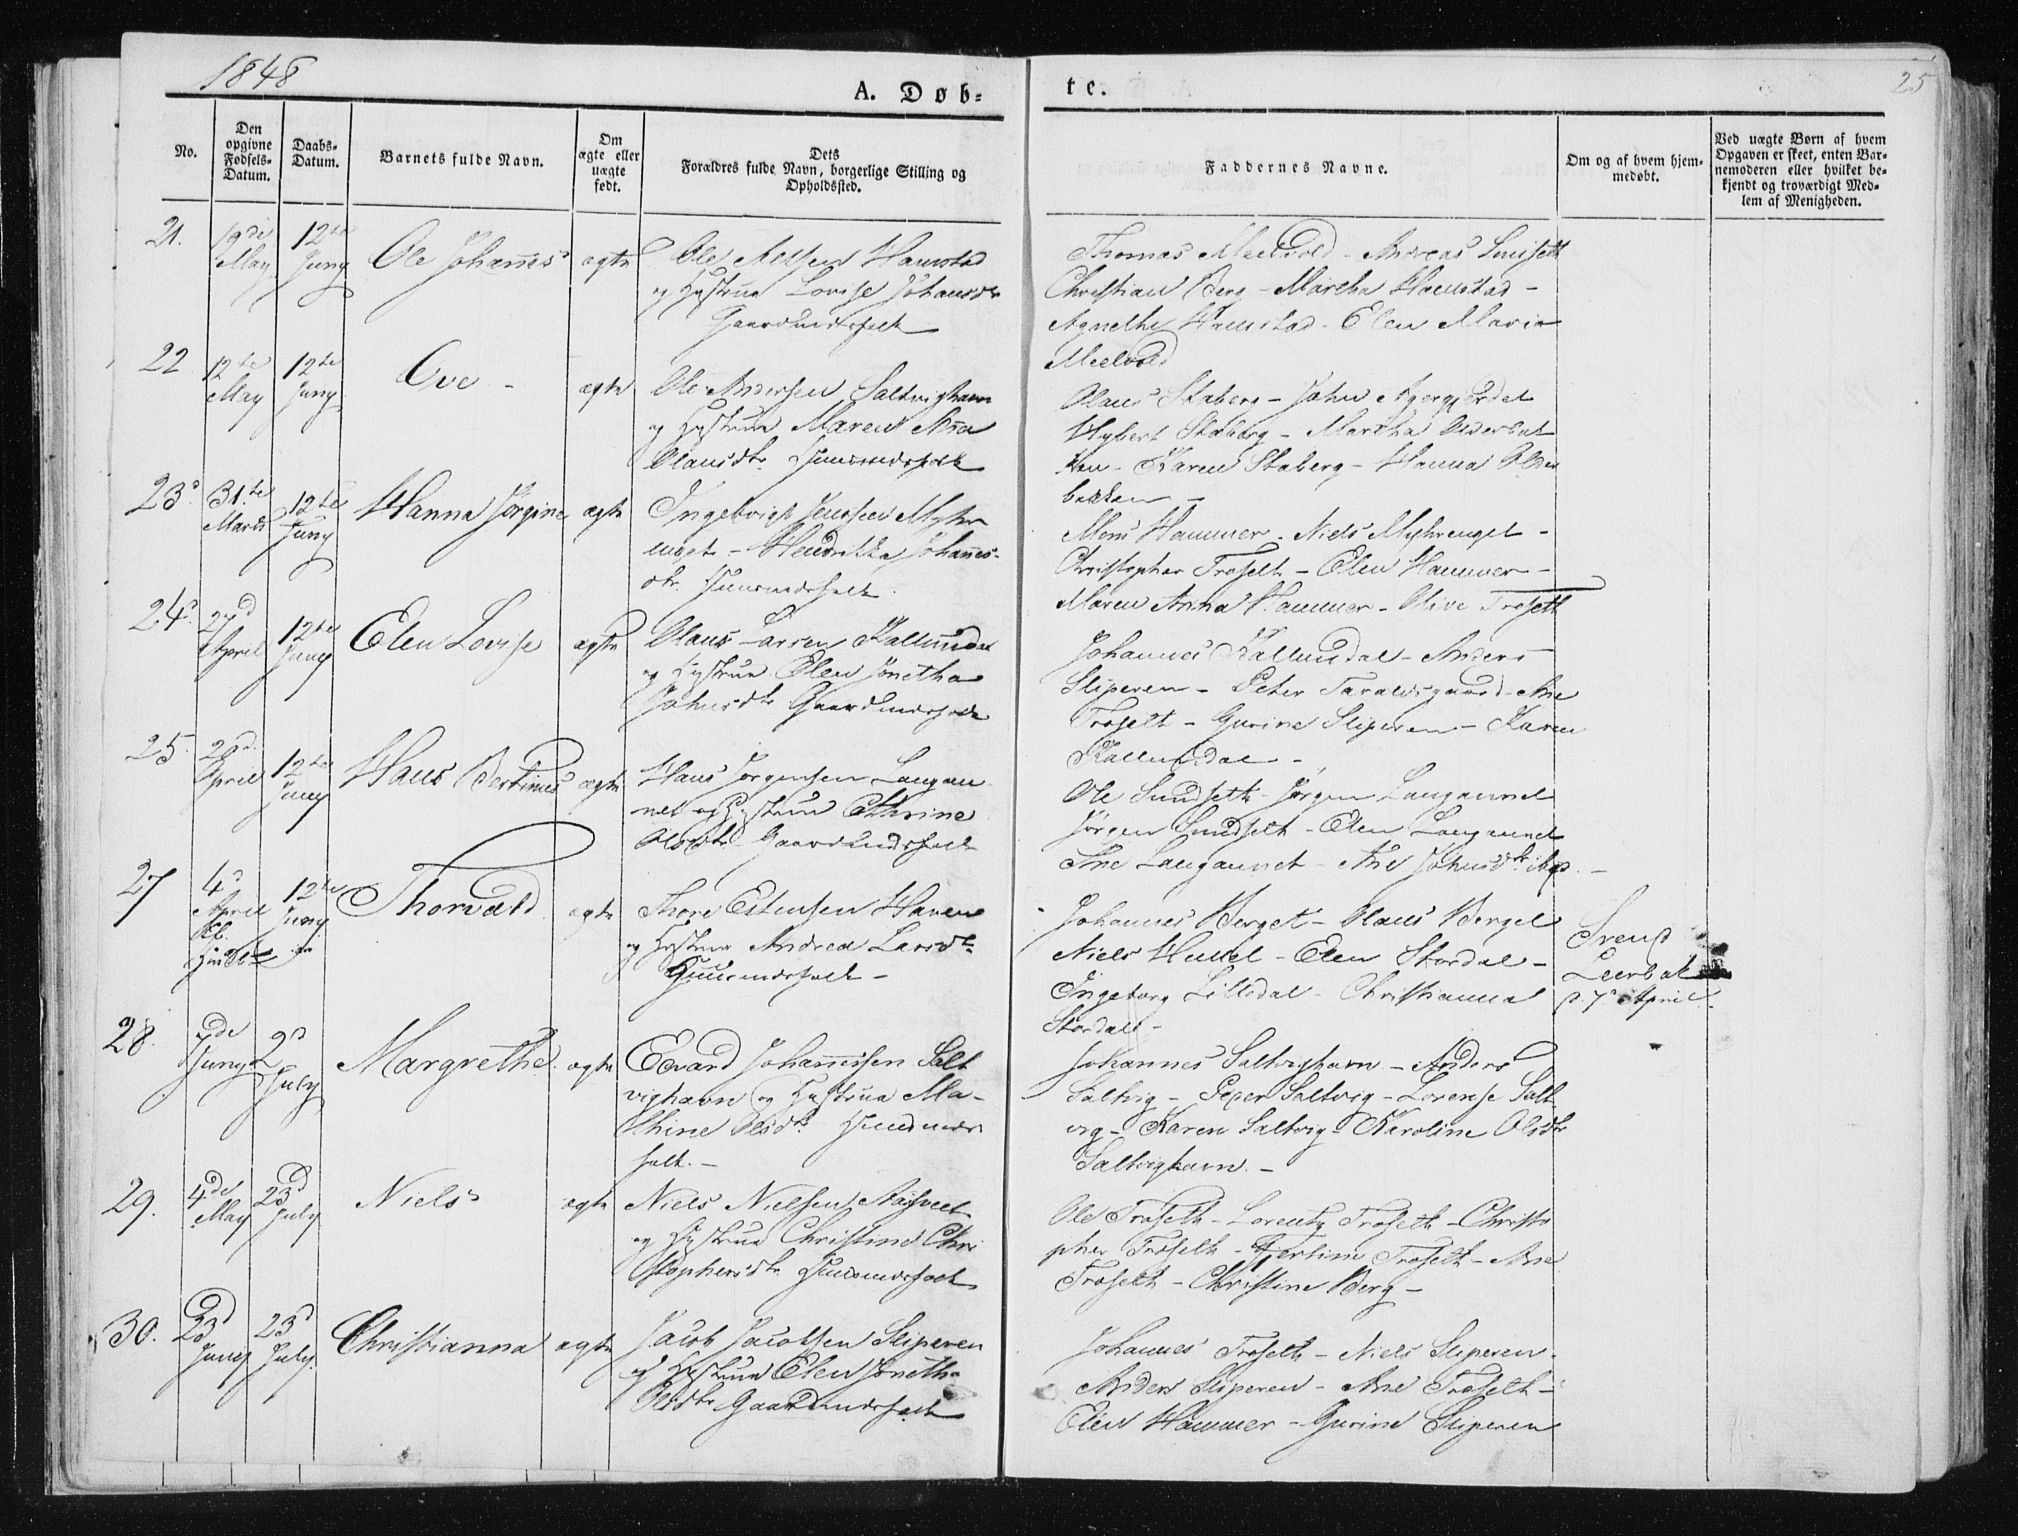 1848
A. Døb-
te.
25
No.
Den opgivne Fødsels-Datum.
Daabs-Datum.
Barnets fulde Navn.
Om ægte eller uægte født.
Dets Forældres fulde Navn, borgerlige Stilling og Opholdssted.
Faddernes Navne.
Om og af hvem hjemmedøbt.
Ved uægte Børn af hvem Opgaven er skeet, enten Barnemoderen eller hvilket bekjendt og troværdigt Medlem af Menigheden.
21. 19de May 12te Juny Ole Johannes ægte Ole Haustad
og Hystrue Lovise Johansdr
Gaardmandsfolk
Thomas Meelvold - Andreas
Christian Berg - Martha Haustad -
Agnethe Haustad - Elen Maria
Meelvold
22 12te May 12te Juny Ove - ægte Ole Andersen Saltvighavn
og Hystrue Maren Anna
Olausdr. Huusmandsfolk
Olaus Staberg - John Agergjerdet
Hybert Staberg - Martha Olderbak
ken - Karen Staberg - Hanna Older
bakken -
23 31te Marts 12te Juny Hanna Jørgine ægte Ingebrigt Jenssen Myhr
enget - Hendrikka Johannes-
dr. Huusmandsfolk.
Mons Hammer - Niels Myhrenget -
Christopher Troseth - Elen Hammer -
Maren Anna Hammer - Olive Troseth
24 27d April 12te Juny Elen Lovise ægte Olaus Larsen Kallundal
og Hystrue Elen Jonetha
Johnsdr Gaardmandsfolk
Johannes Kallundal - Anders
Sliperen - Peter Taraldsgaard - Ane
Troseth - Gurine Sliperen - Karen
Kallundal -
25. 28d April 12te Juny Hans Bertinus ægte Hans Jørgensen Langan
net og Hystrue Cthrine
Olsdr Gaardmandsfolk
Ole Sundseth - Jørgen Langannet
Jørgen Sundseth - Elen Langannet
Ane Langannet - Ane Johnsdr ibd. -
27 4d April 12te Juny Thorvald ægte Thore Estensen Haven
og Hystrue Andrea Larsdr
Huusmandsfolk -
Johannes Berget - Olaus Berget
Niels - Elen Stordal -
Ingeborg Lilledal - Christianna
Stordal -
Svend
Leerbak
d. 7d April.
28. 7de Juny 2d July Margrethe. ægte Edvard Johannessen Salt
vighavn og Hystrue Ma-
thine Olsdr. Huusmands
folk. -
Johannes Saltvighavn - Anders
Saltvig - Peter Saltvig - Lorense Salt
vig - Karen Saltvig - Karoline Olsdr
Saltvighavn. -
29. 4de May 23d July Niels ægte Niels Nielsen
og Hystrue Christine Chri
stophersdr. Huusmandsfolk
Ole Troseth - Lorentz Troseth - Christo
pher Troseth - Troseth - Ane
Troseth - Christine Berg -
30. 23d Juny 23d July. Christianna ægte Jacob Jacobsen Sliperen
og Hystrue Elen Joneth.
Olsdr Gaardmandsfolk
Johannes Troseth - Niels Sliperen.
Anders Sliperen - Ane Troseth -
Elen Hammer - Gurine Sliperen